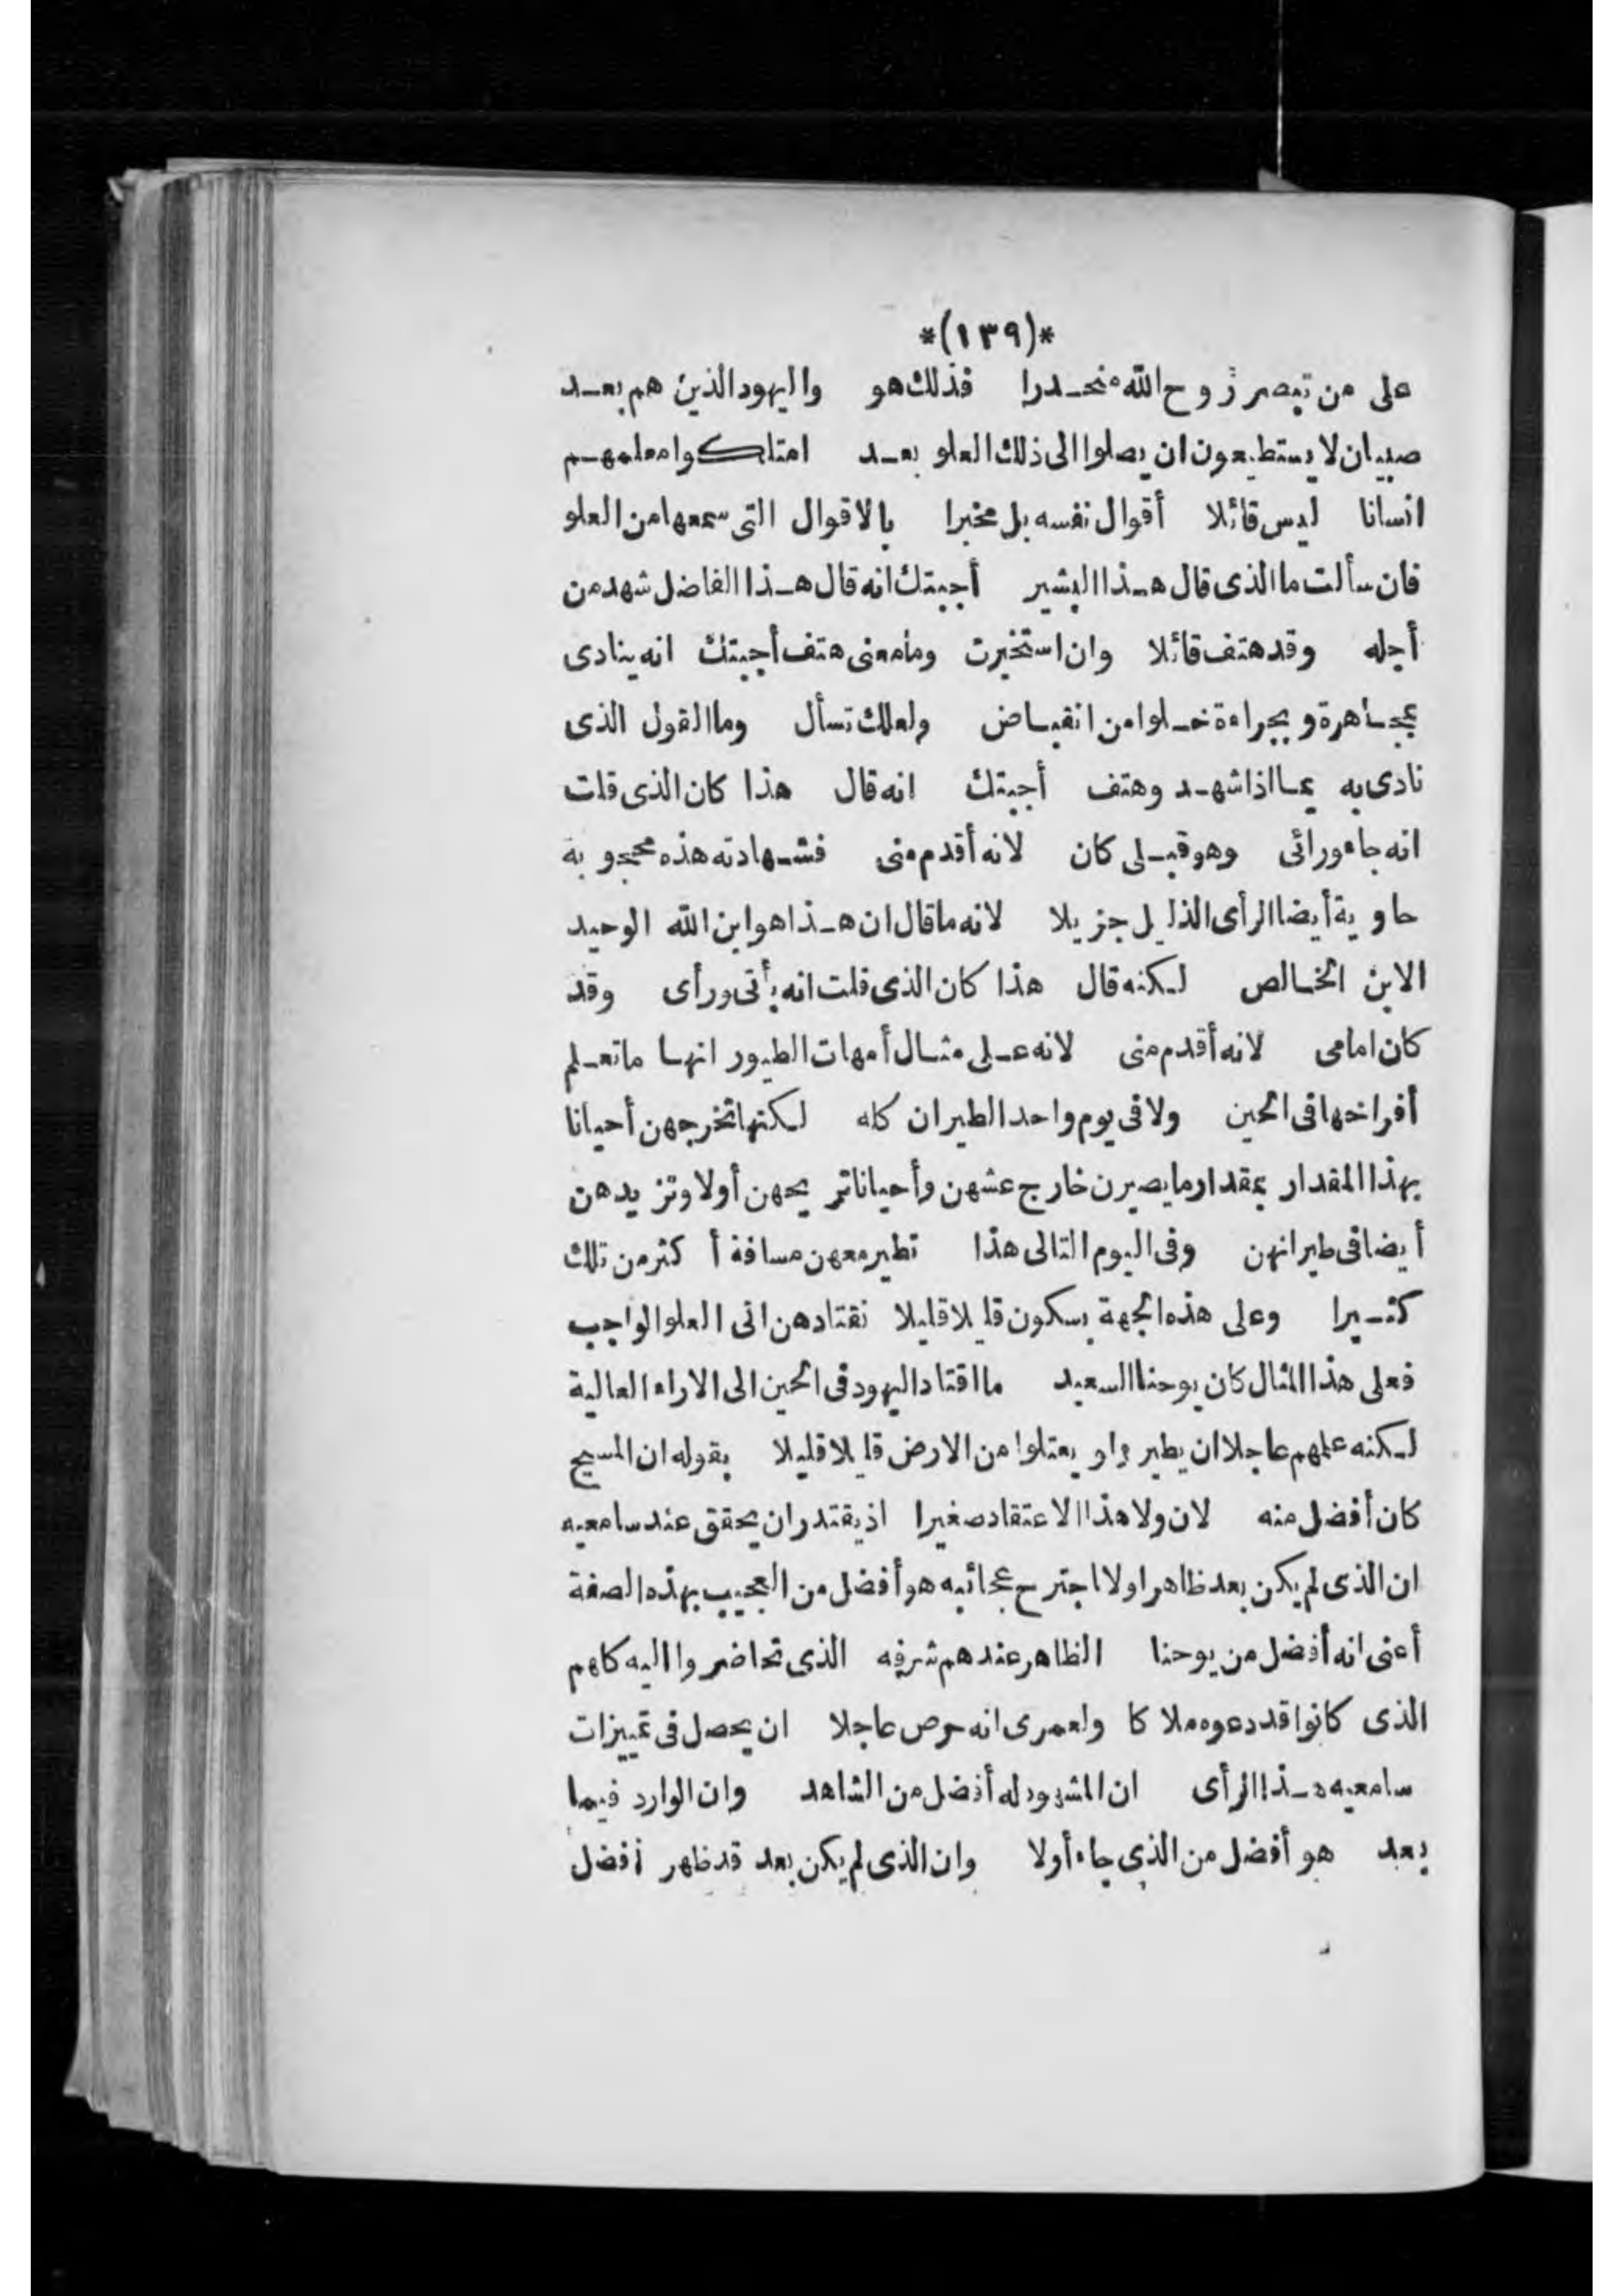 *(١٣٩)*
على من تبصر روح الله منحدرا فذلك هو واليهود الذين هم بعد
صبيان لا يستطيعون ان يصلوا الى ذلك العلو بعد امتلكوا معلمهم
انسانا ليس قائلا أقوال نفسه بل مخبرا بالاقوال التى سمعها من العلو
فان سألت ما الذى قال هذا البشير أجبتك انه قال هذا الفاضل شهد من
أجله وقد هتف قائلا وان استخبرت وما معنى هتف أجبتك انه ينادى
بمجاهرة وبجراءة خلوا من انقباض ولعلك تسأل وما القول الذى
نادى به بما اذا شهد وهتف أجبتك انه قال هذا كان الذى قلت
انه جاء ورائى وهو قبلى كان لانه أقدم منى فشهادته هذه محجوبة
حاوية أيضا الرأى الذليل جزيلا لانه ما قال ان هذا هو ابن الله الوحيد
الابن الخالص لكنه قال هذا كان الذى قلت انه يأتى ورأى وقد
كان امامى لانه أقدم منى لانه على مثال أمهات الطيور انها ما تعلم
أفراخها فى الحين ولا فى يوم واحد الطيران كله لكنها تخرجهن أحيانا
بهذا المقدار بمقدار ما يصيرن خارج عشهن وأحيانا تريحهن أولا وتزيدهن
أيضا فى طيرانهن وفى اليوم التالى هذا تطير معهن مسافة أكثر من تلك
كثيرا وعلى هذه الجهة بسكون قليلا قليلا تقتادهن الى العلو الواجب
فعلى هذا المثال كان يوحنا السعيد ما اقتاد اليهود فى الحين الى الاراء العالية
لكنه علمهم عاجلا ان يطيروا ويعتلوا من الارض قليلا قليلا بقوله ان المسيح
كان أفضل منه لان ولا هذا الاعتقاد صغيرا اذ يقتدر ان يحقق عند سامعيه
ان الذى لم يكن بعد ظاهرا ولا اجترح عجائبه هو أفضل من العجيب بهذه الصفة
أعنى انه أفضل من يوحنا الظاهر عندهم شرفه الذى تحاضروا اليه كلهم
الذى كانوا قد دعوه ملاكا ولعمرى انه حرص عاجلا ان يحصل فى تمييزات
سامعيه هذا الرأى ان المشهود له أفضل من الشاهد وان الوارد فيما
بعد هو أفضل من الذى جاء أولا وان الذى لم يكن بعد قد ظهر أفضل